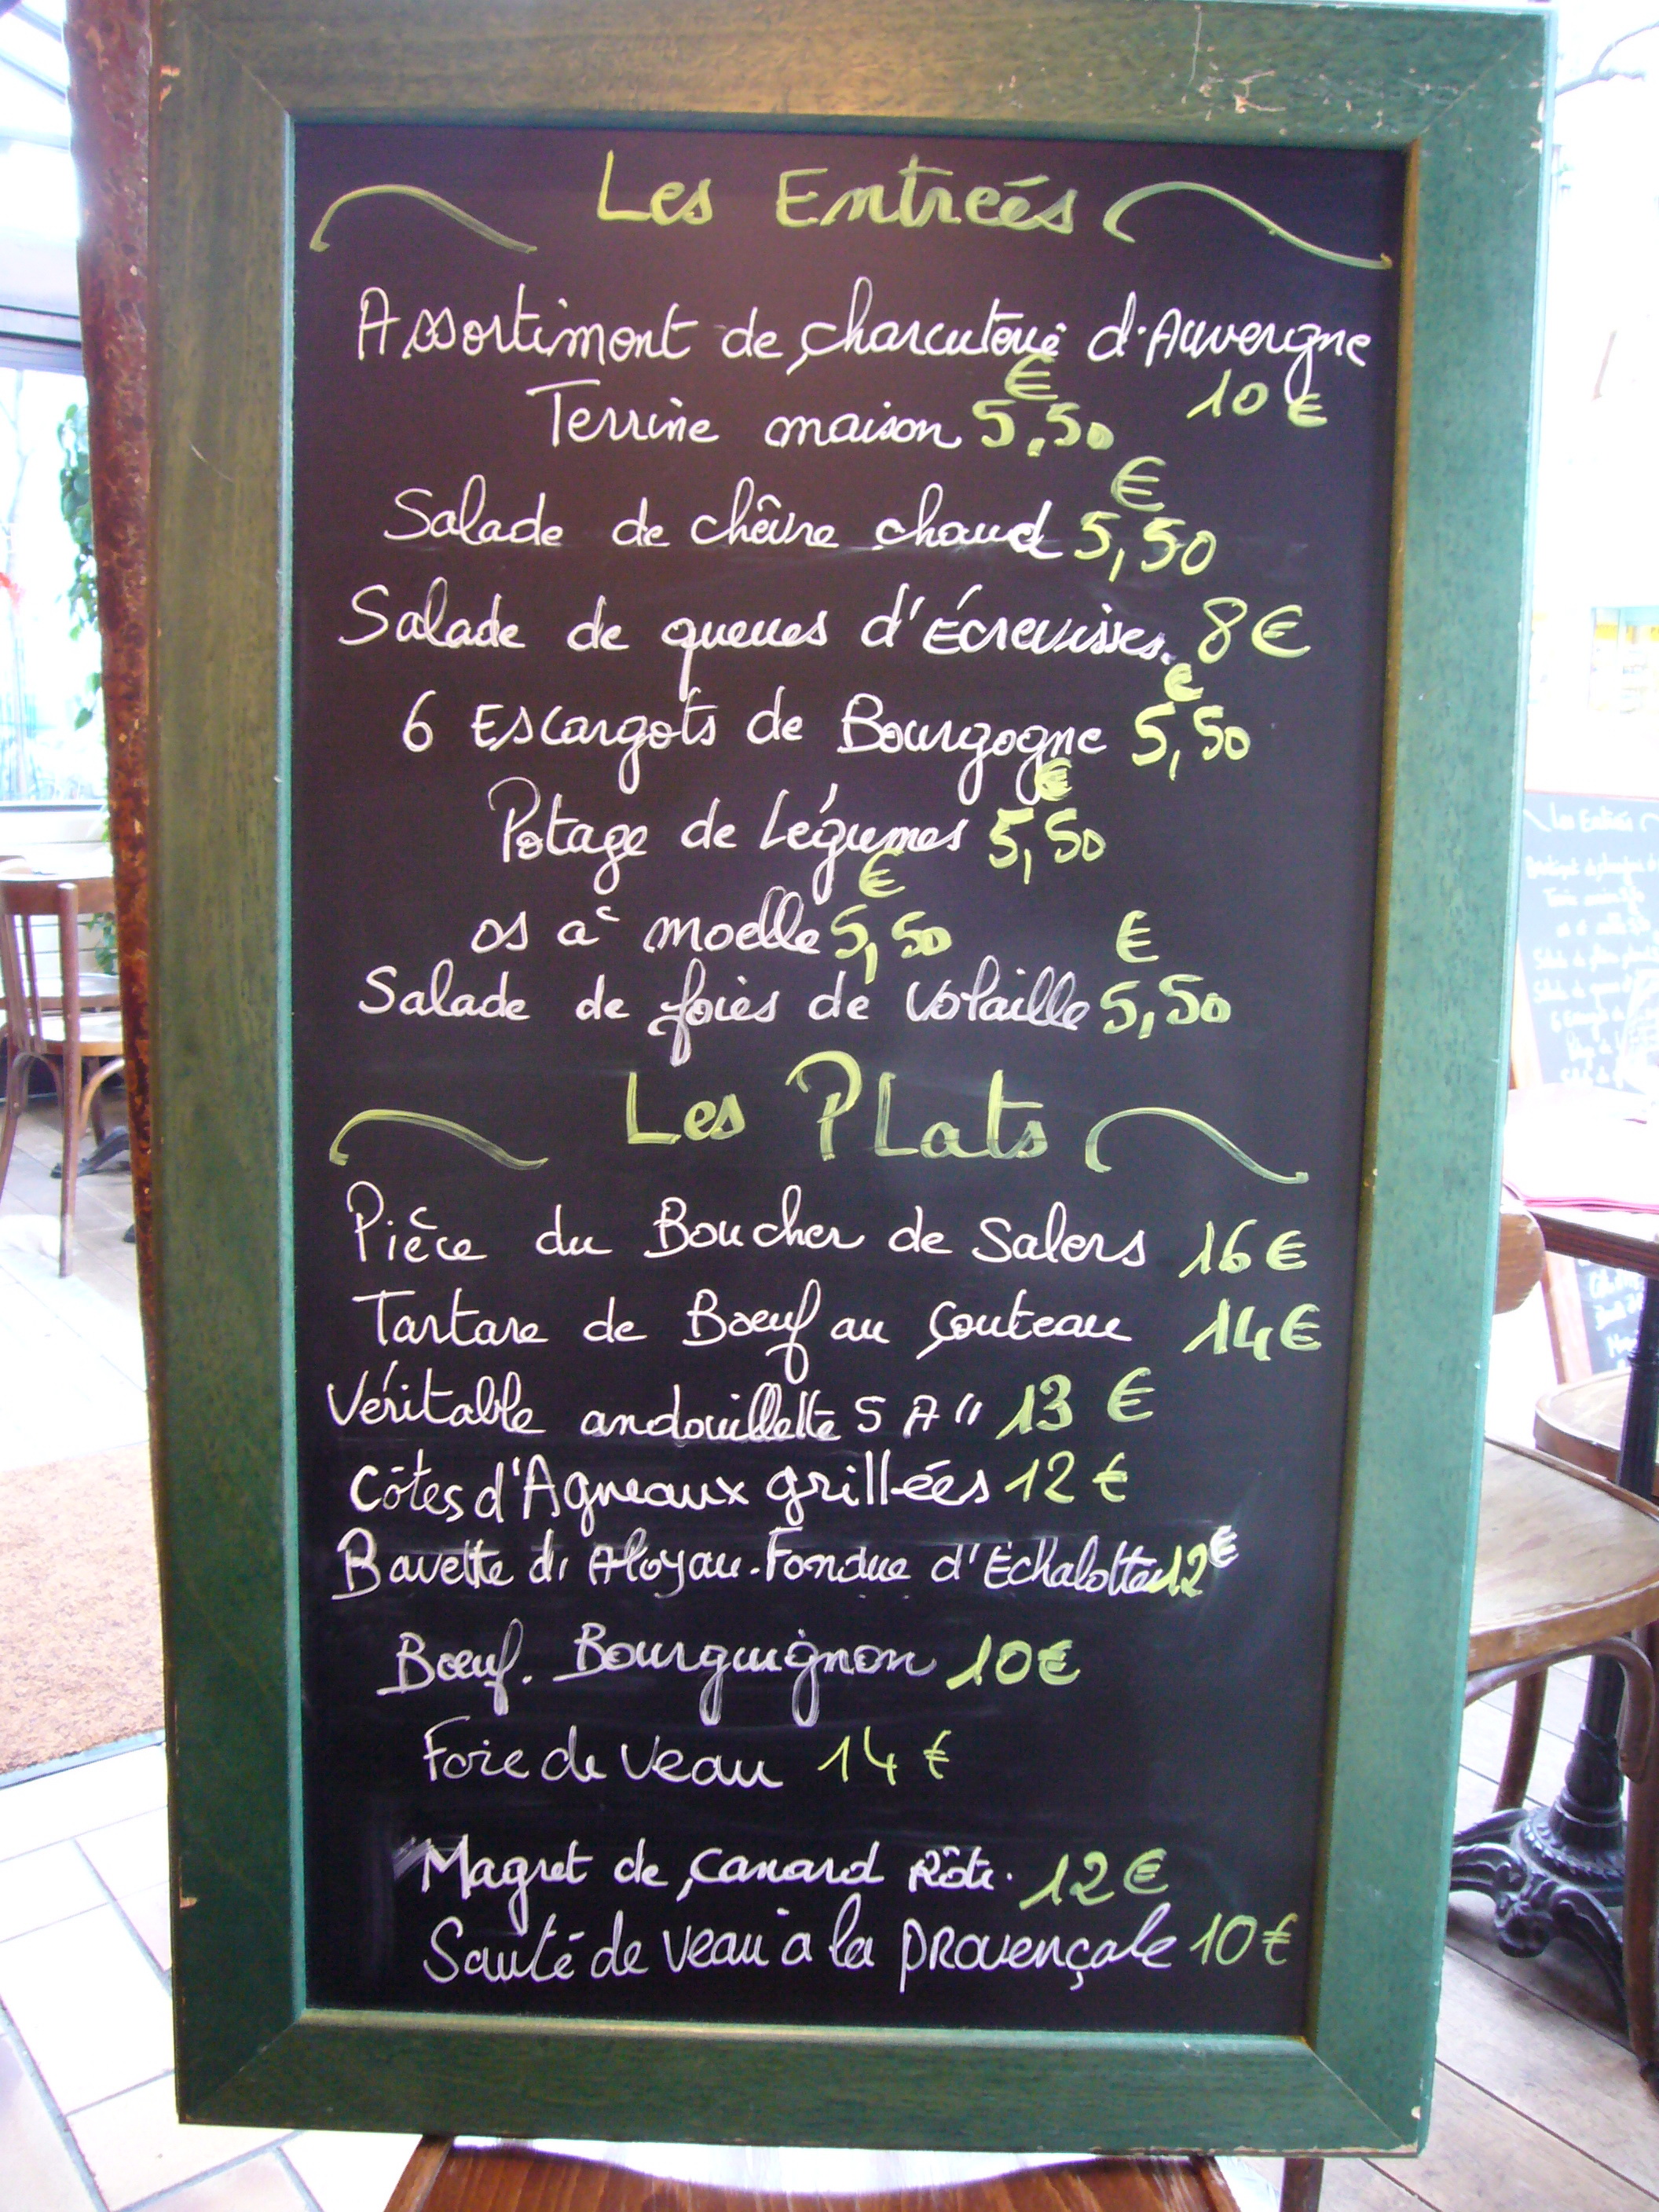 Les Entreés
Assortiment de charcuterie d'Auvergne
10 €
Terrine maison 5,50 €
Salade de chêvre chaud 5,50 €
Salade de queues d'Écrevisses. 8€
6 Escargots de Bourgogne 5,50 €
Potage de Légumes 5,50 €
os à moelle 5,50 €
Salade de foies de Volaille 5,50 €
Les PLats
Pièce du Boucher de Salers 16€
Tartare de Bœuf au couteau 14€
Véritable andouillette 5 A" 13 €
Côtes d'Agneaux grillées 12€
Bavette d' Aloyau. Fondue d'Echalottes 12€
Bœuf. Bourguignon 10€
Foie de Veau 14€
Magret de Canard Rôti. 12€
Sauté de Veau à la PROVENÇALE 10€
Les Entreés